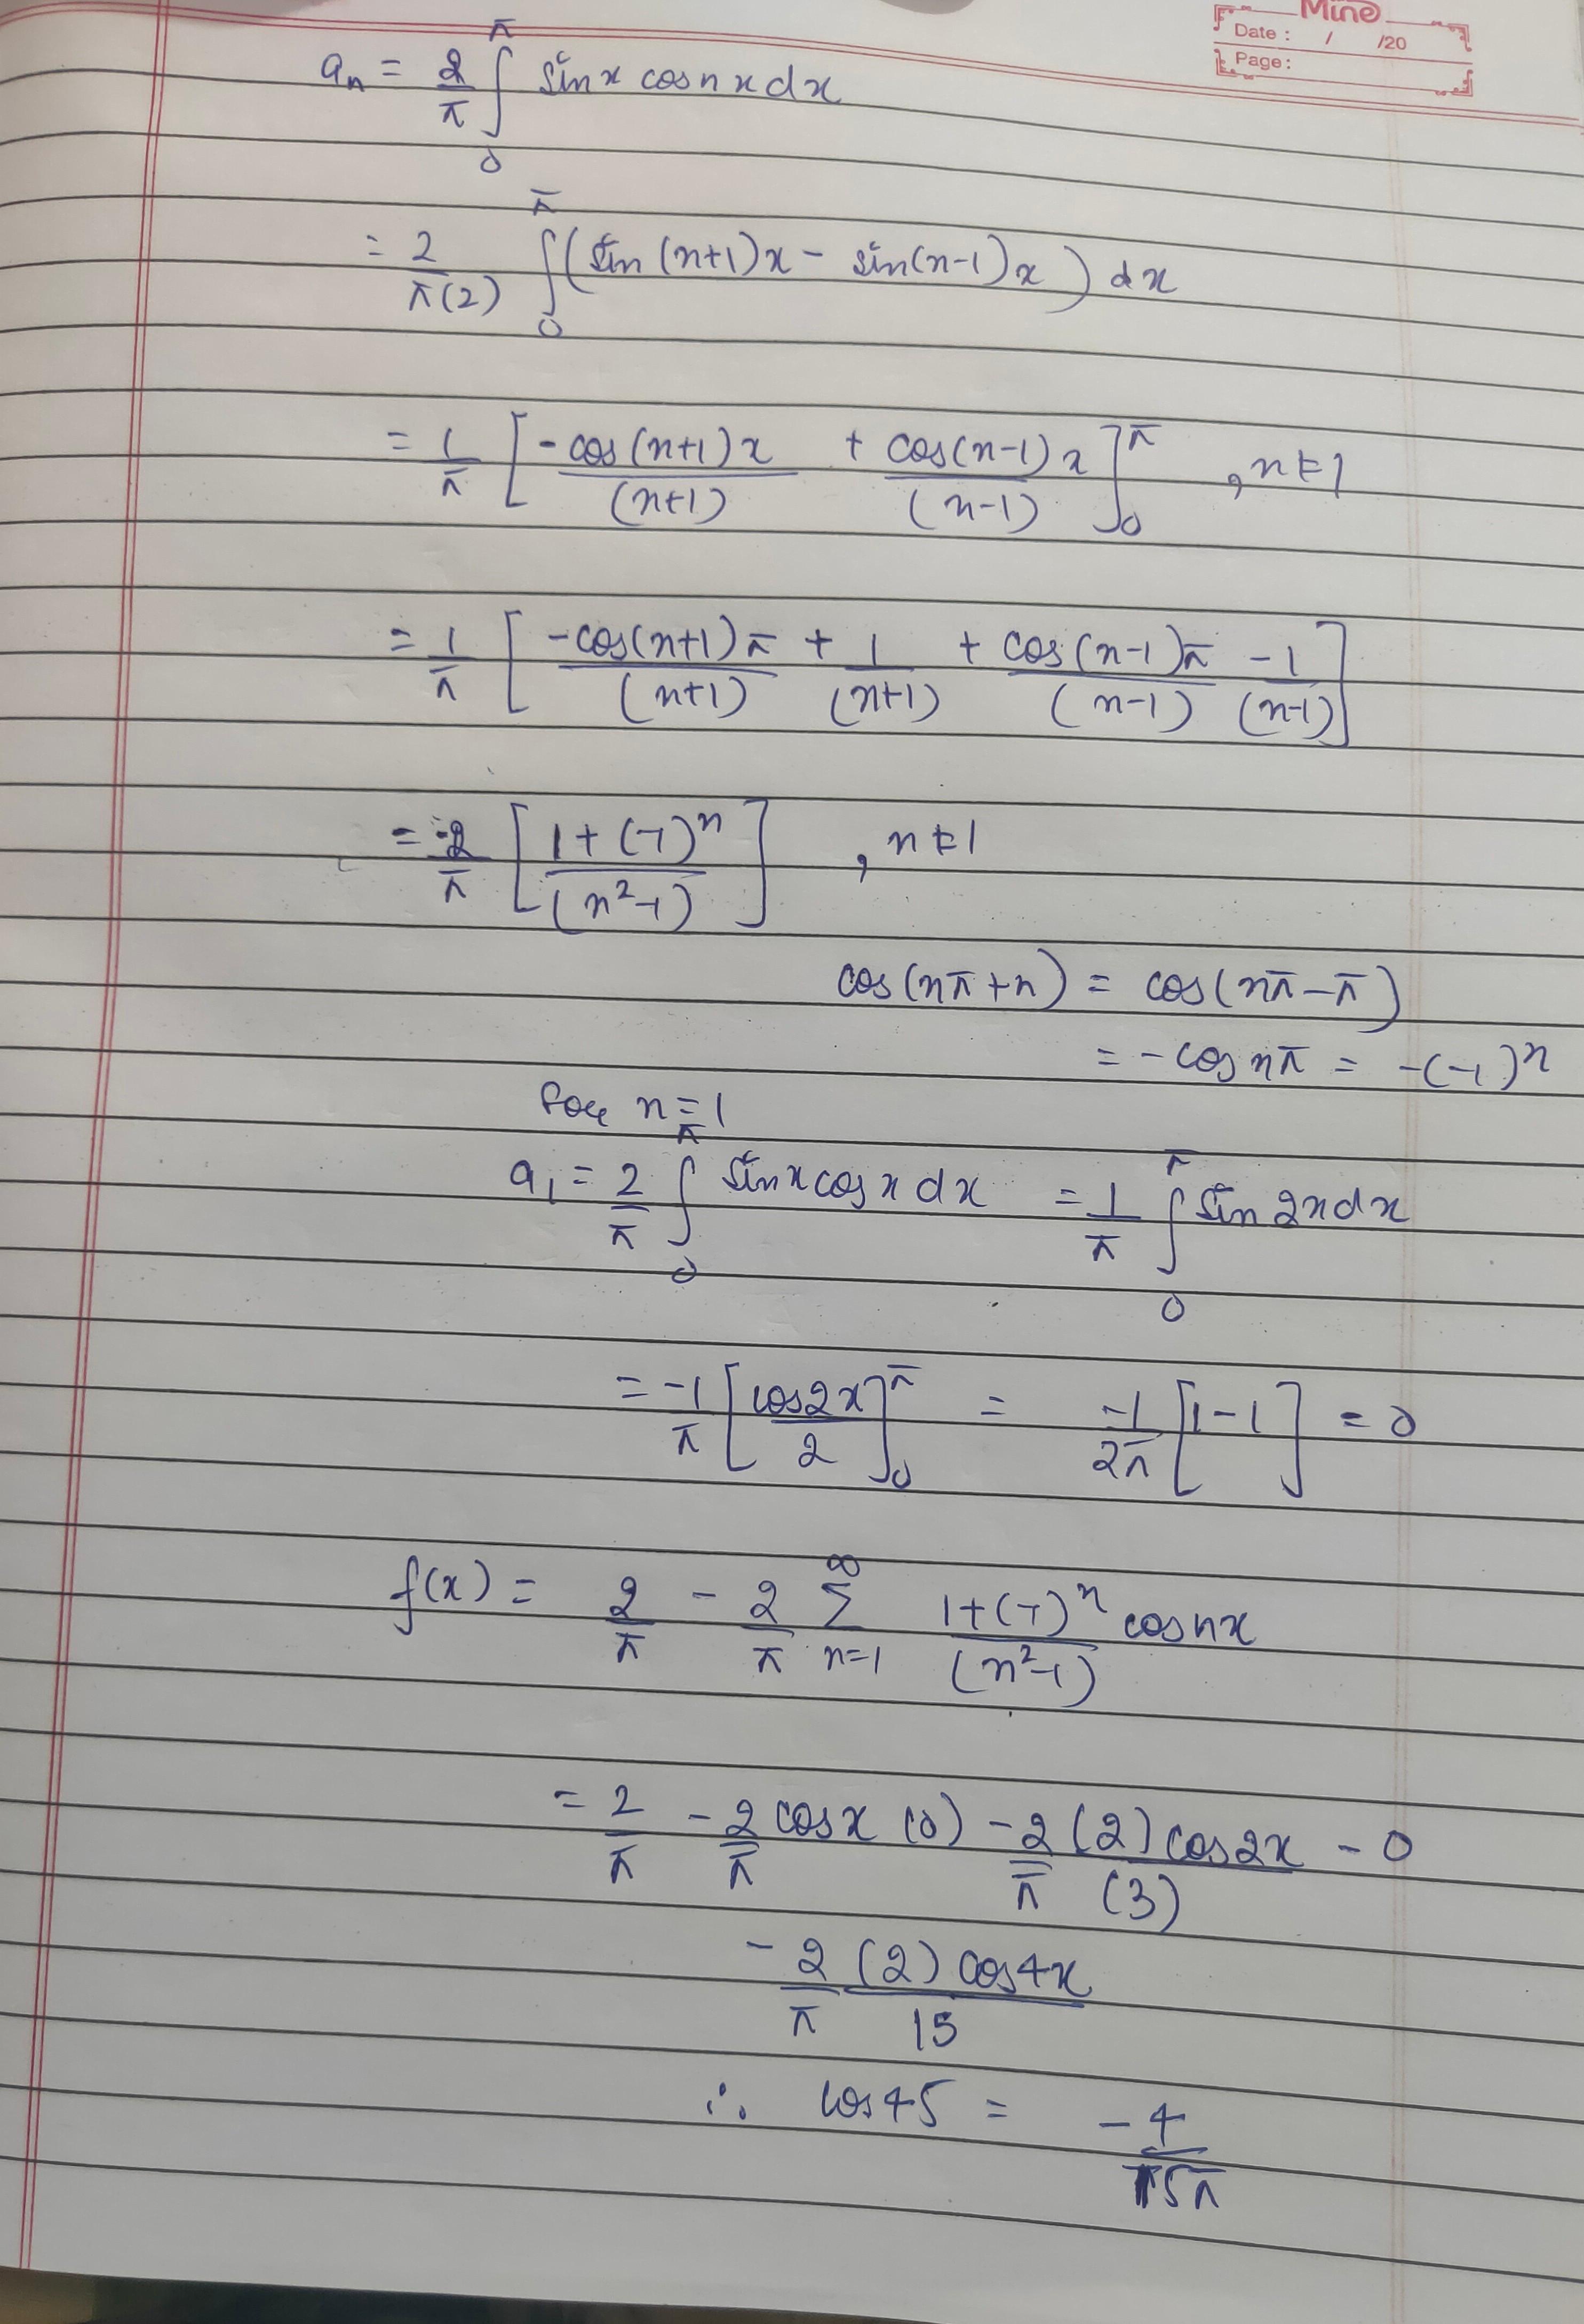 Mino
Date : / /20
Page:
aₙ = 2/π ∫₀^π sinx cosnx dx
= 2/π(2) ∫₀^π (sin(n+1)x - sin(n-1)x) dx
= 1/π [-cos(n+1)x/(n+1) + cos(n-1)x/(n-1)]₀^π , n≠1
= 1/π [-cos(n+1)π/(n+1) + 1/(n+1) + cos(n-1)π/(n-1) - 1/(n-1)]
= -2/π [1+(-1)ⁿ/(n²-1)] , n≠1
cos(nπ+π) = cos(nπ-π)
= -cosnπ = -(-1)ⁿ
for n=1
a₁ = 2/π ∫₀^π sinx cosx dx = 1/π ∫₀^π sin2xdx
= -1/π [cos2x/2]₀^π = -1/2π [1-1] = 0
f(x) = 2/π - 2/π Σ_{n=1}^∞ 1+(-1)ⁿ/(n²-1) cosnx
= 2/π - 2/π cosx (0) - 2/π (2)cos2x/(3) - 0
- 2/π (2) cos4x/15
∴ cos45 = -4/15π